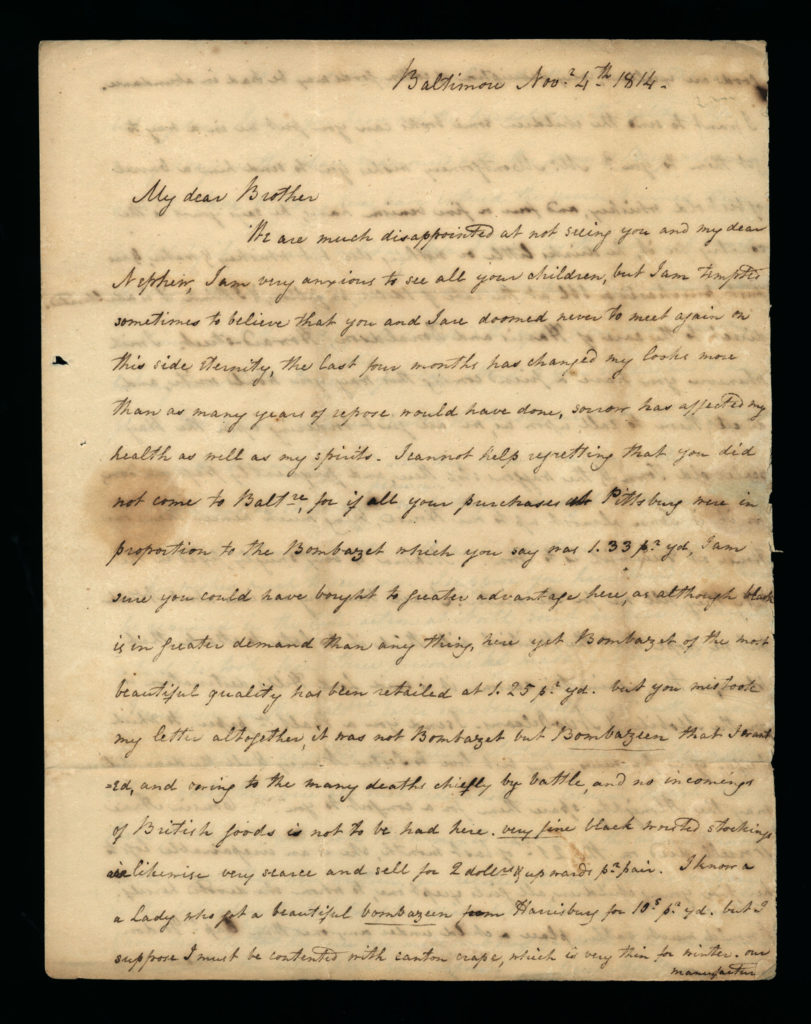 Baltimore Novr 4th 1814.
My dear Brother
We are much disappointed at not seeing you and my dear
Nephew, I am very anxious to see all your children, but I am tempted
sometimes to believe that you and I are doomed never to meet again on
this side eternity, the last four months has changed my looks more
than as many years of repose would have done, sorrow has affected my
health as well as my spirits. I cannot help regretting that you did
not come to Baltre, for if all your purchases at Pittsburg were in
proportion to the Bombazet which you say was 1.33 pr yd, I am
sure you could have bought to greater advantage here, as although black
is in greater demand than any thing, here yet Bombazet of the most
beautiful quality has been retailed at 1.25 pr yd. but you mistook
my letter altogether, it was not Bombazet but Bombazeen that I want
=ed, and owing to the many deaths chiefly by battle, and no incomings
of British goods is not to be had here. very fine black worsted stockings
likewise very scarce and sell for 2 dollrs & upwards pr pair. I know a
a Lady who got a beautiful bombazeen from Harrisburg for 10s pr yd. but I
suppose I must be contented with canton crape, which is very thin for winter. our
manufactur